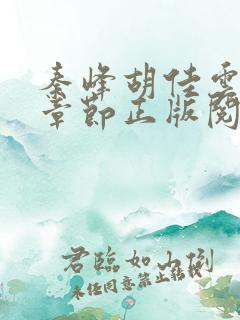 秦峰胡佳雲
章節正版閱
君臨如山倒
未经同意禁止转载